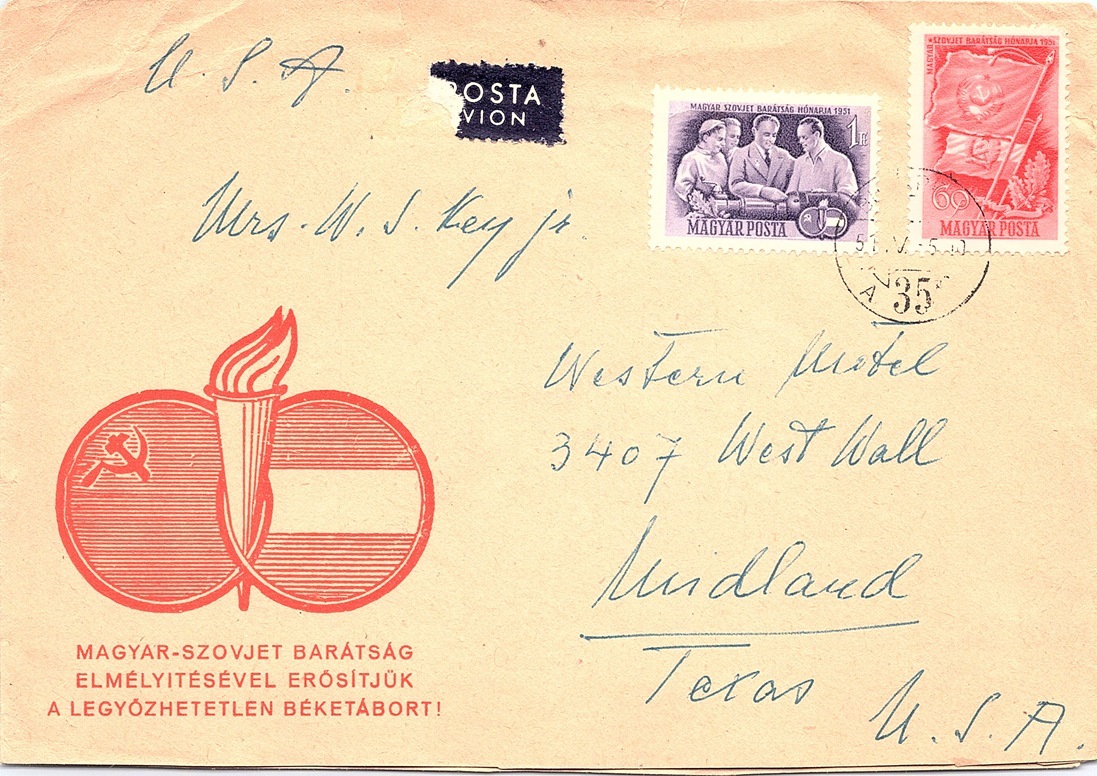 U. S. A.
POSTA
VION
MAGYAR SZOVJET BARÁTSÁG HÓNAPJA 1951
1 Ft
MAGYAR POSTA
MAGYAR SZOVJET BARÁTSÁG HÓNAPJA 1951
60
MAGYAR POSTA
35
Mrs. W. S. Key jr.
Western Motel
3407 West Wall
Midland
Texas
U. S. A.
MAGYAR-SZOVJET BARÁTSÁG
ELMÉLYITÉSÉVEL ERŐSÍTJÜK
A LEGYŐZHETETLEN BÉKETÁBORT!